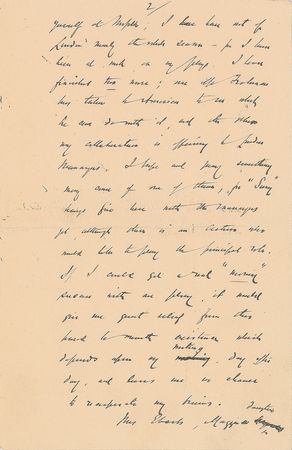 2/
yourself at Naples; I have been out of
London nearly the whole season - for I have
been at work on my plays. I have
finished two more; one
has taken to America to see what
he can do with it, and the other
my collaborateur is offering to London
Managers. I hope and pray something
may come of one of them, for "
hangs fire here with the managers
yet, although there is an actress who
would like to play the principal role.
If I could get a real "money"
success with one play, it would
give me great relief from this
hand to mouth existence which
depends upon my writing, day after
day, and leaves me no chance
to recuperate my brains.
Mrs Eberts, daughter